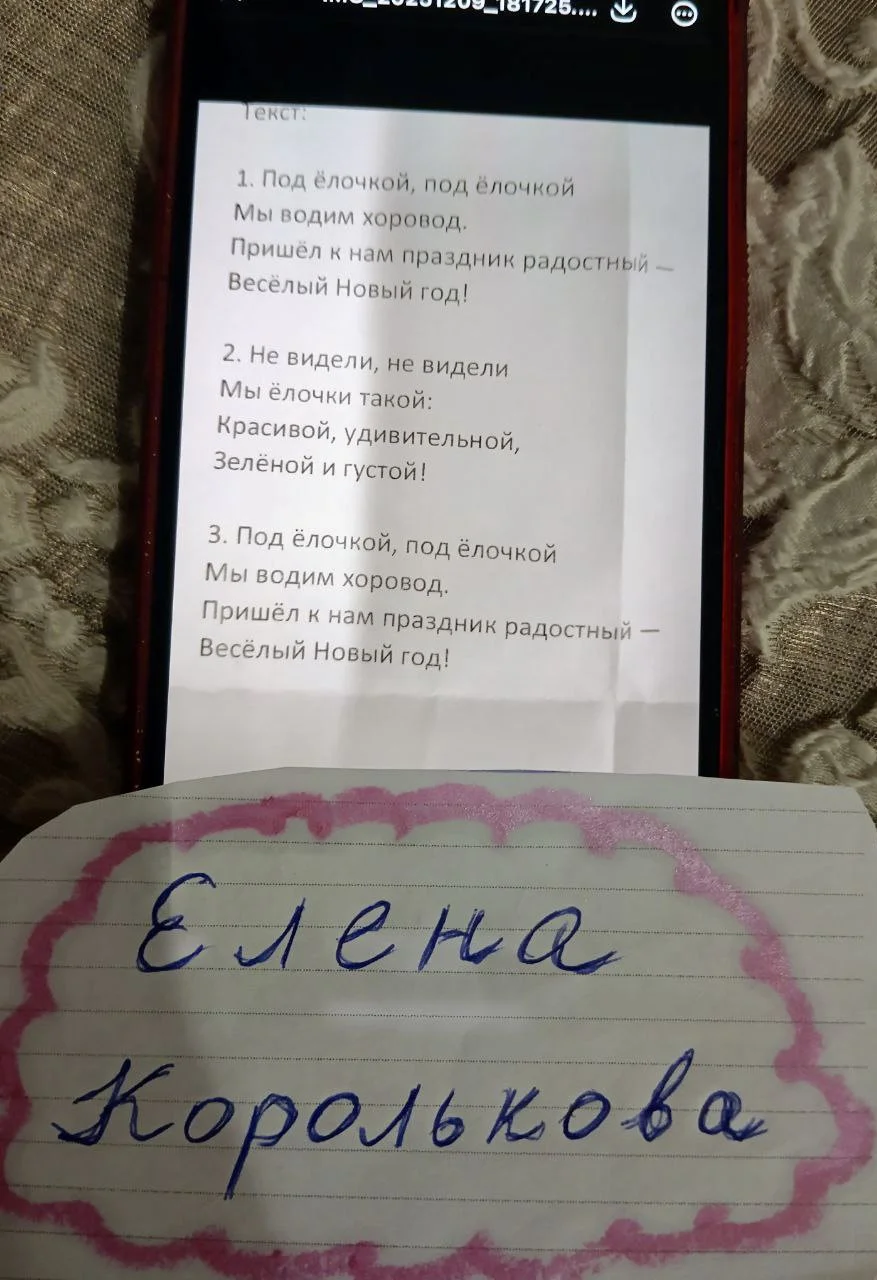 IMG_20251209_181725....
Текст:
1. Под ёлочкой, под ёлочкой
Мы водим хоровод.
Пришёл к нам праздник радостный —
Весёлый Новый год!
2. Не видели, не видели
Мы ёлочки такой:
Красивой, удивительной,
Зелёной и густой!
3. Под ёлочкой, под ёлочкой
Мы водим хоровод.
Пришёл к нам праздник радостный —
Весёлый Новый год!
Елена
Королькова